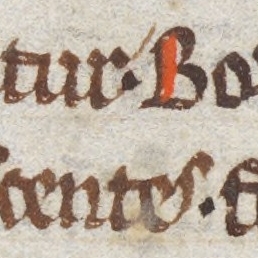 tur. Bo
centes.